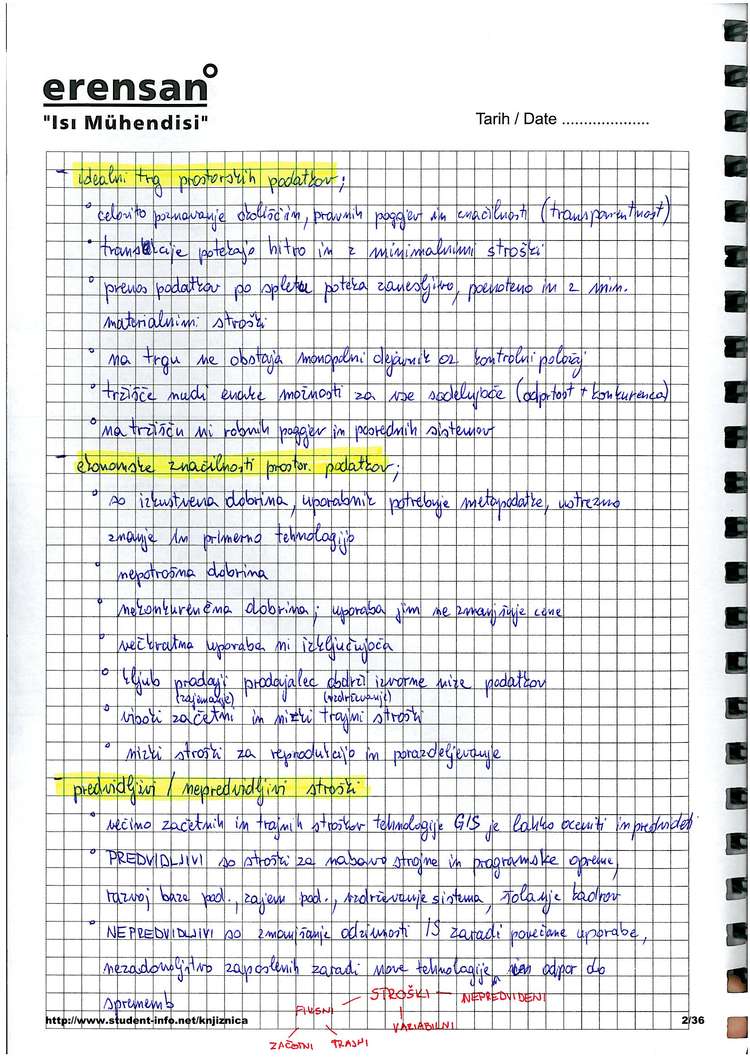 erensan
"Isı Mühendisi"
Tarih / Date ....................
- idealni trg prostorskih podatkov;
° celovito poznavanje okoliščin, pravnih pogojev in značilnosti (transparentnost)
° transakcije potekajo hitro in z minimalnimi stroški
° prenos podatkov po spletu poteka zanesljivo, poenoteno in z min.
materialnimi stroški
° na trgu ne obstaja monopolni dejavnik oz kontrolni položaj
° tržišče nudi enake možnosti za vse sodelujoče (odprtost + konkurenca)
° na tržišču ni robnih pogojev in posrednih sistemov
- ekonomske značilnosti prostor. podatkov;
° so izkustvena dobrina, uporabnik potrebuje metapodatke, ustrezno
znanje in primerno tehnologijo
° nepotrošna dobrina
° nekonkurenčna dobrina; uporaba jim ne zmanjšuje cene
° večkratna uporaba ni izključujoča
° kljub prodaji prodajalec obdrži izvorne nize podatkov
(zajemanje) (vzdrževanje)
° visoki začetni in nizki trajni stroški
° nizki stroški za reprodukcijo in porazdeljevanje
- predvidljivi / nepredvidljivi stroški
° večino začetnih in trajnih stroškov tehnologije GIS je lahko oceniti in predvideti
° PREDVIDLJIVI so stroški za nabavo strojne in programske opreme,
razvoj baze pod., zajem pod., vzdrževanje sistema, šolanje kadrov
° NEPREDVIDLJIVI so zmanjšanje odzivnosti IS zaradi povečane uporabe,
nezadovoljstvo zaposlenih zaradi nove tehnologije in odpor do
sprememb
STROŠKI — NEPREDVIDENI
FIKSNI
VARIABILNI
ZAČETNI TRAJNI
http://www.student-info.net/knjiznica
2/36